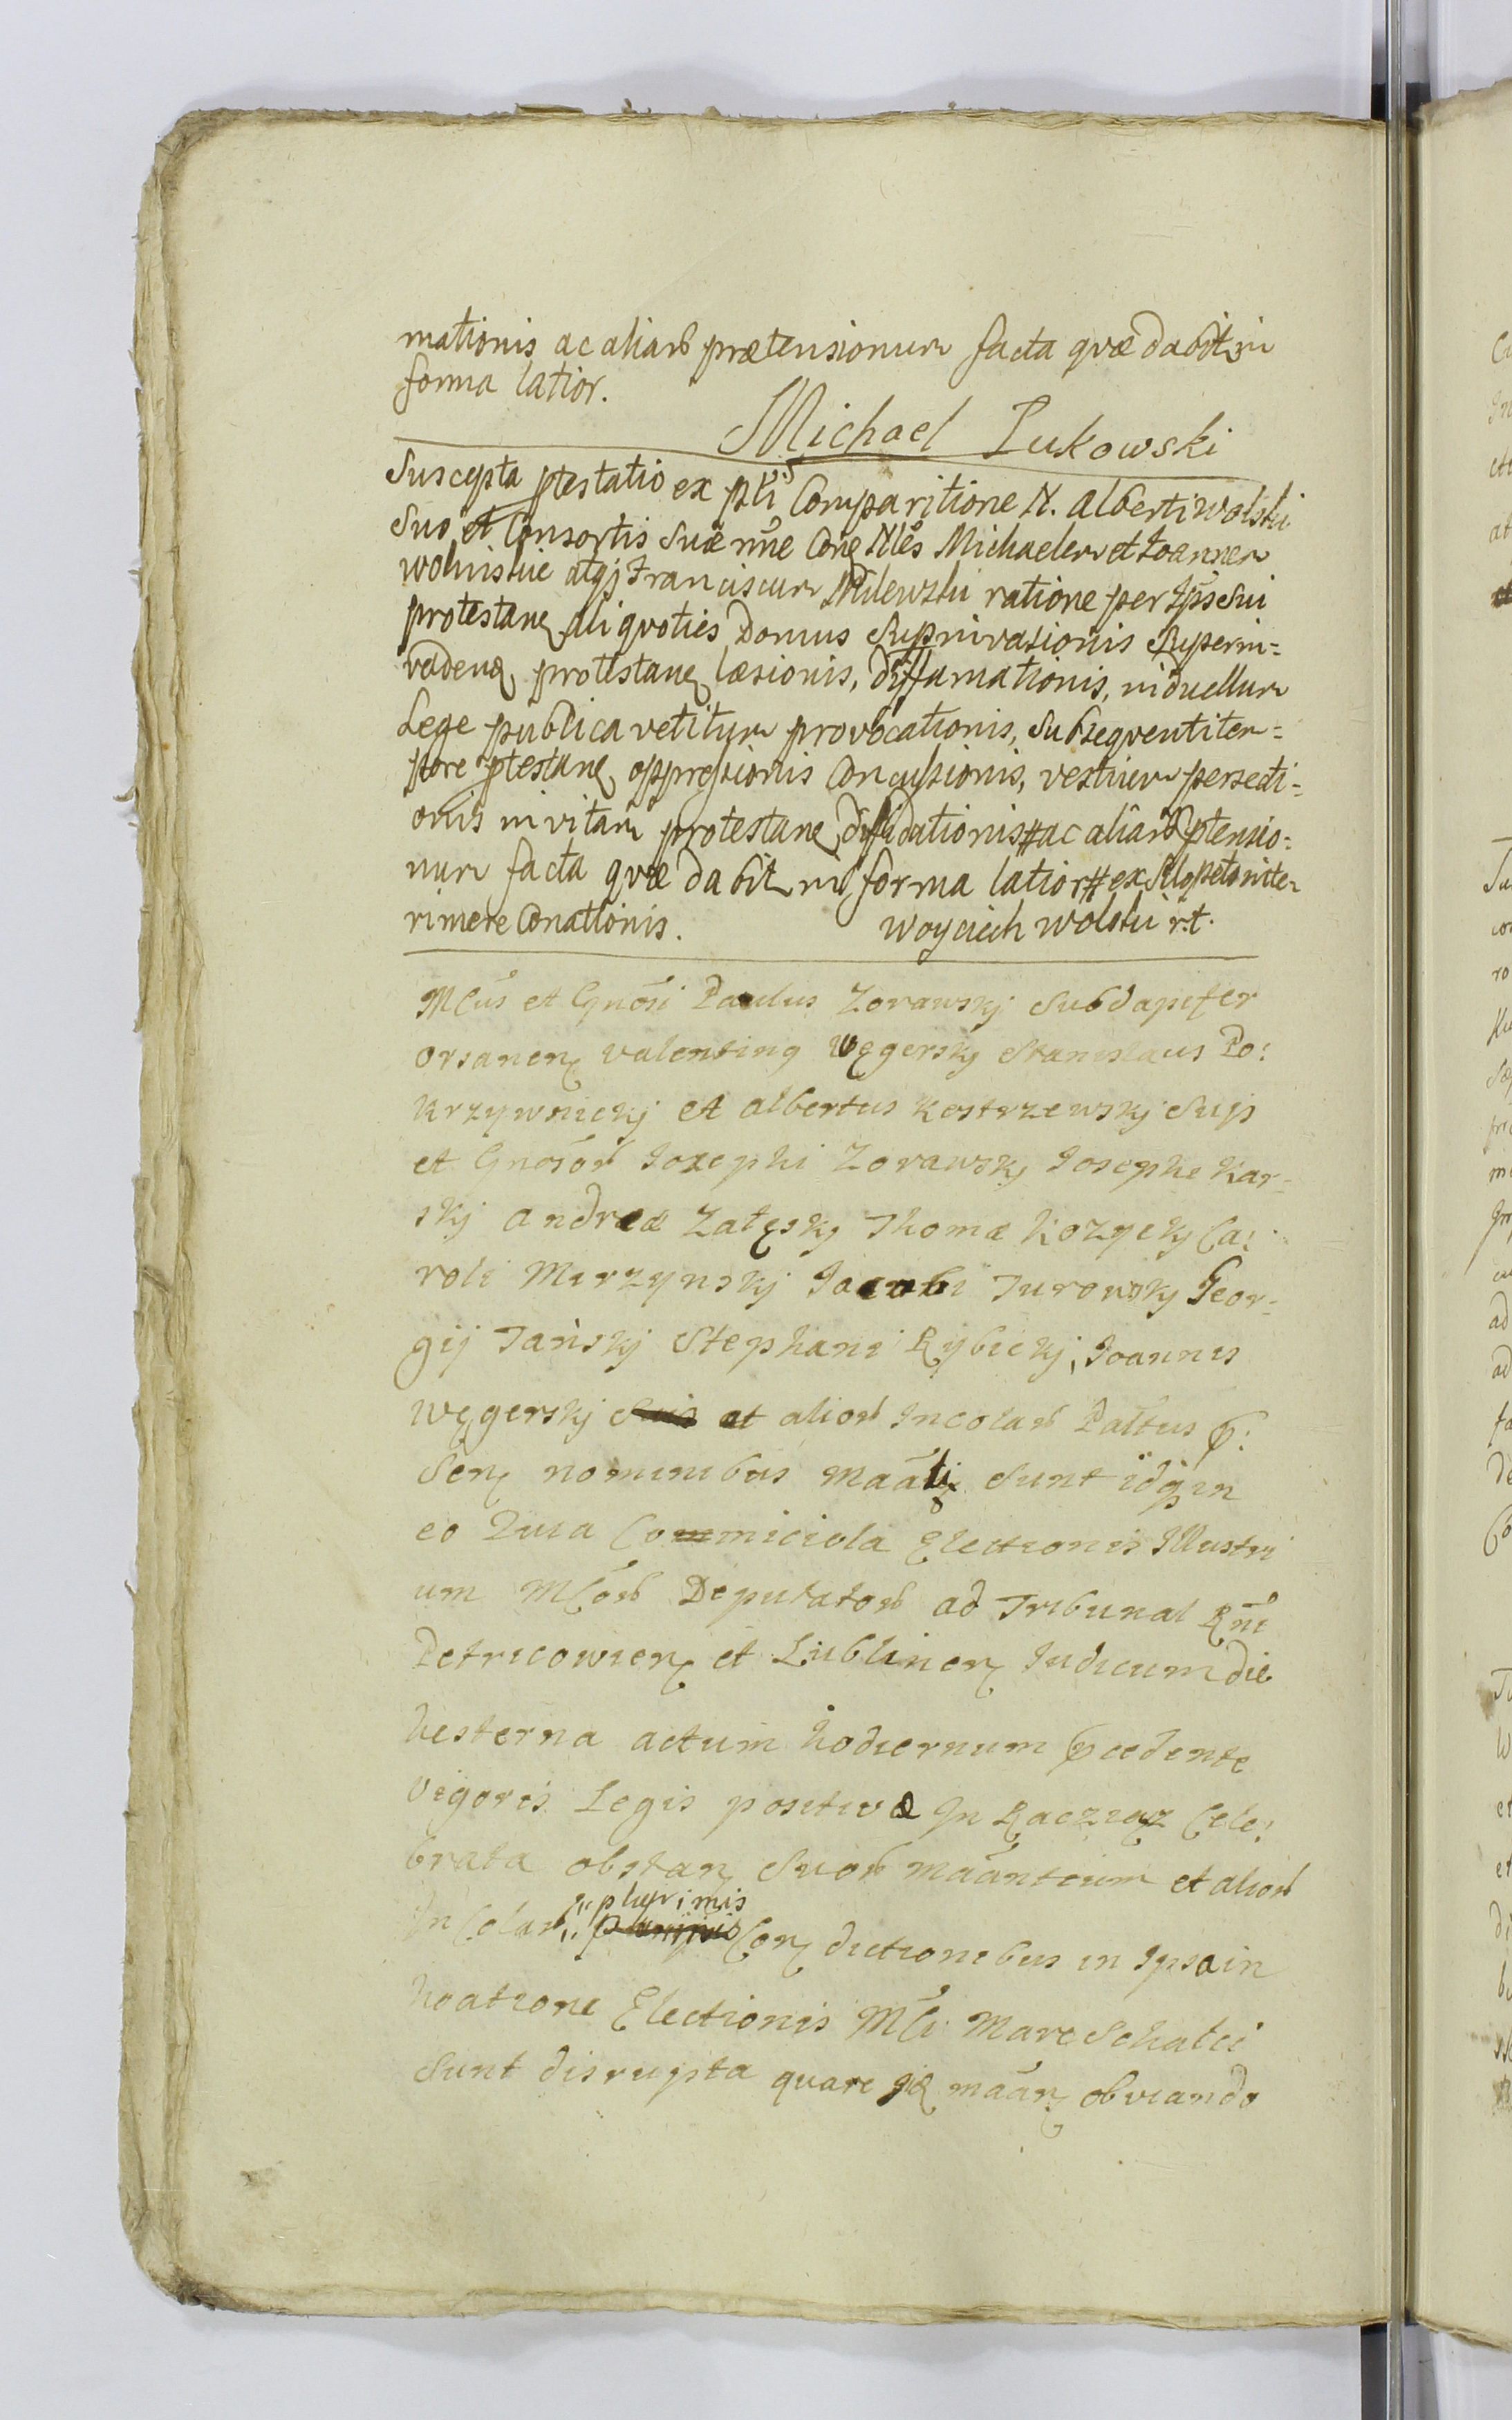 mationis ac aliarũ prætensionum facta quæ dabit in
forma latior.
Michael Łukowski
Suscepta ptestatio ex pśli Comparitione N. Alberti Wolski
Suo et Consortis Suæ nñe Con̨ Nłes Michaelem et Joannem
Wolinskie atq̨ Franciscum Milewski ratione per Ipś Sui
protestan̨ aliquoties Domus Supinvasionis Superin=
vaden̨ protestan̨ læsionis, diffamationis, in duellum
Lege publica vetitum provocationis, Subsequenti tem=
pore ptestan̨ oppressionis Concussionis, vestium persecti=
onis in vitam protestan̨ diffidationis # ac aliarũ ptensio=
num facta quæ dabit in forma latior # ex Sclopeto inter
rimere Conationis. Woyciech Wolski r.t.
Mĉus et Gnõsi Paulus Zorawskj Subdapifer
Orsanen̨ Valentin9 Węgerskj Stanislaus Po:
krzywnickj et Albertus Kostrzewskj Suis
et Gnõsorũ Josephi Zorawskj Josephi Kar-
skj Andreæ Załęskj Thomæ Kozyckj Ca:
roli Mirzynskj Jacobi Turowskj Geor-
gij Tańskj Stephani Rybickj, Joannis
Węgerskj Suis et aliorũ Incolarũ Pałtus p:
Sen̨ nominibus mããti Sunt idq̨ in
eo Quia Commiciola Electionis Illustri
um Mĉorũ Deputatorũ ad Tribunal Rñi
Petricowien̨ et Lublinen̨ Judicum die
hesterna actum hodiernum pcedente
vigoris Legis positivæ In Raciąz Cele:
brata obstan̨ Suorũ mããntium et aliorũ
plurimis
Incolarũ Con̨dictionibus in Ipsa in
hoatione Electionis Mĉi Mareschalci
Sunt disrupta quare iid̨ mããn̨ obviando